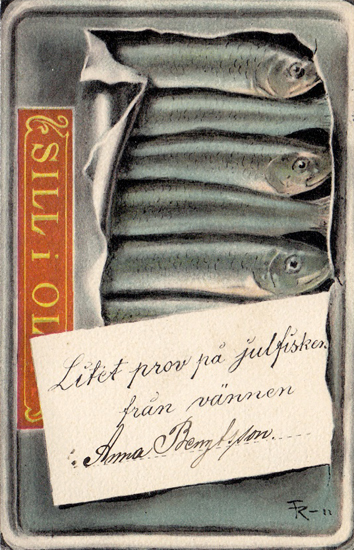 SILL i OL
Litet prov på julfisken
från vännen
Anna Bengtsson.
FR-11